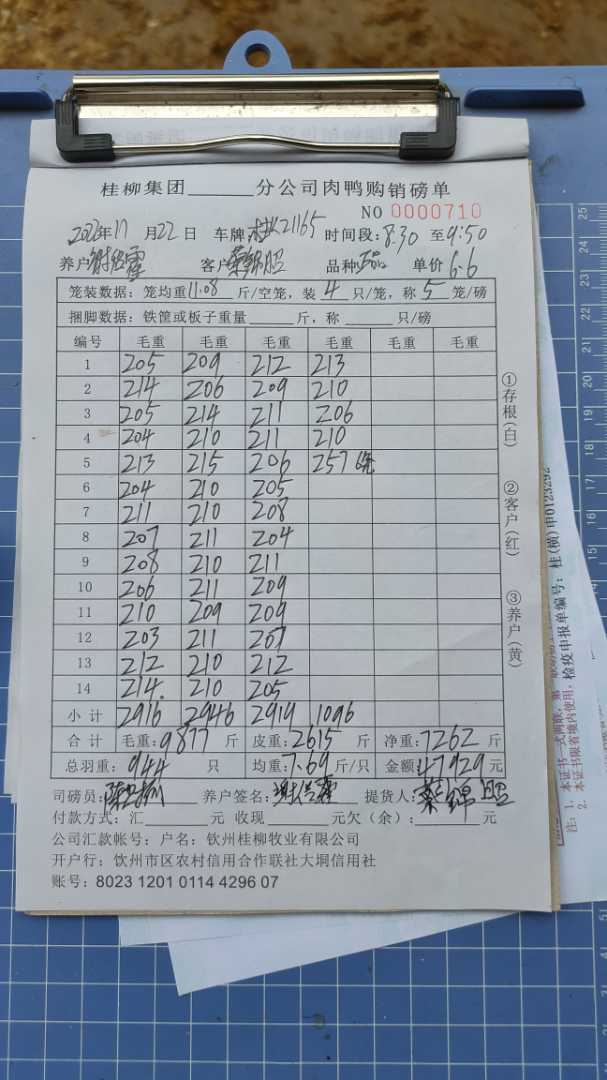 桂柳集团______分公司肉鸭购销磅单
NO 0000710
月22日 车牌 21165 时间段:8:30 至9:50
养户 客户 品种正品 单价6.6
笼装数据: 笼均重11.08斤/空笼,装4只/笼,称5笼/磅
捆脚数据: 铁筐或板子重量______斤,称______只/磅
编号 毛重 毛重 毛重 毛重 毛重 毛重
1 205 209 212 213
2 214 206 209 210
3 205 214 211 206
4 204 210 211 210
5 213 215 206 257
6 204 210 205
7 211 210 208
8 207 211 204
9 208 210 211
10 206 211 209
11 210 209 209
12 203 211 207
13 212 210 212
14 214 210 205
小计 2916 2946 2919 1096
合计 毛重:9877斤 皮重:2615斤 净重:7262斤
总羽重: 944 只 均重:7.69斤/只 金额:47929元
司磅员: 养户签名: 提货人:
付款方式: 汇______元 收现______元欠(余):______元
公司汇款帐号: 户名: 钦州桂柳牧业有限公司
开户行: 钦州市区农村信用合作联社大垌信用社
账号: 8023 1201 0114 4296 07
①存根(白)
②客户(红)
③养户(黄)
检疫申报单编号: 桂(横)申0123292
注: 1. 本证书一式两联,第
2. 本证书限省境内使用。